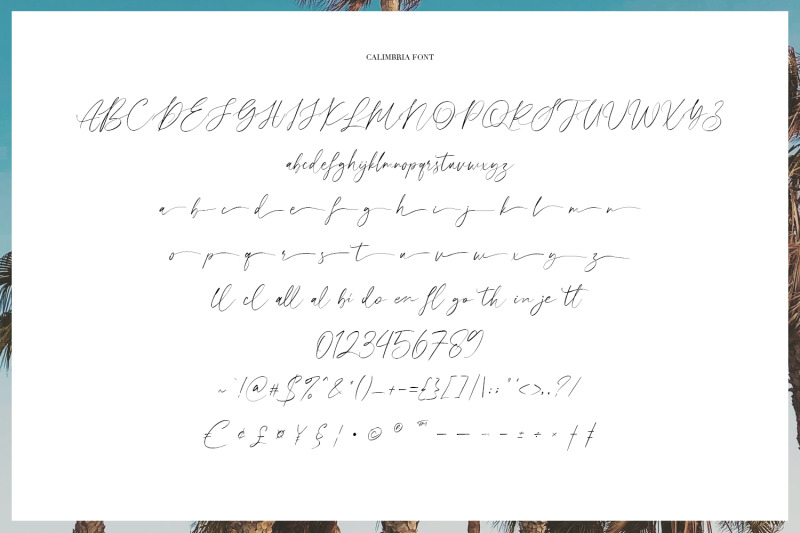 CALIMBRIA FONT
ABCDEFGHIJKLMNOPQRSTUVWXYZ
abcdefghijklmnopqrstuvwxyz
a b c d e f g h i j k l m n
o p q r s t u v w x y z
ll cl all al bi do en fl go th in je tt
0123456789
~`!@#$%^&*()_+-={}[]/|\:;"'<>,.?/
€ ¢ £ ¤ ¥ § ¦ • © ® ™ – — - – — ± ÷ × † ‡